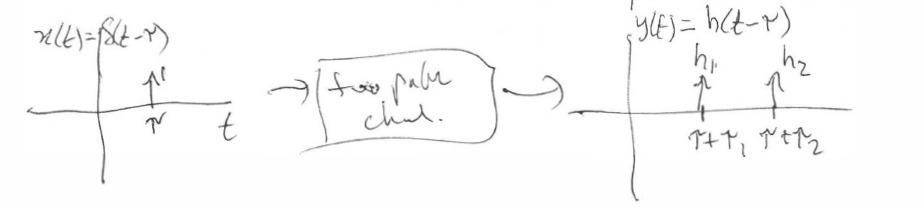 x(t)=δ(t-τ)
1
τ
t
two path
chnl.
y(t)=h(t-τ)
h₁
h₂
τ+τ₁
τ+τ₂